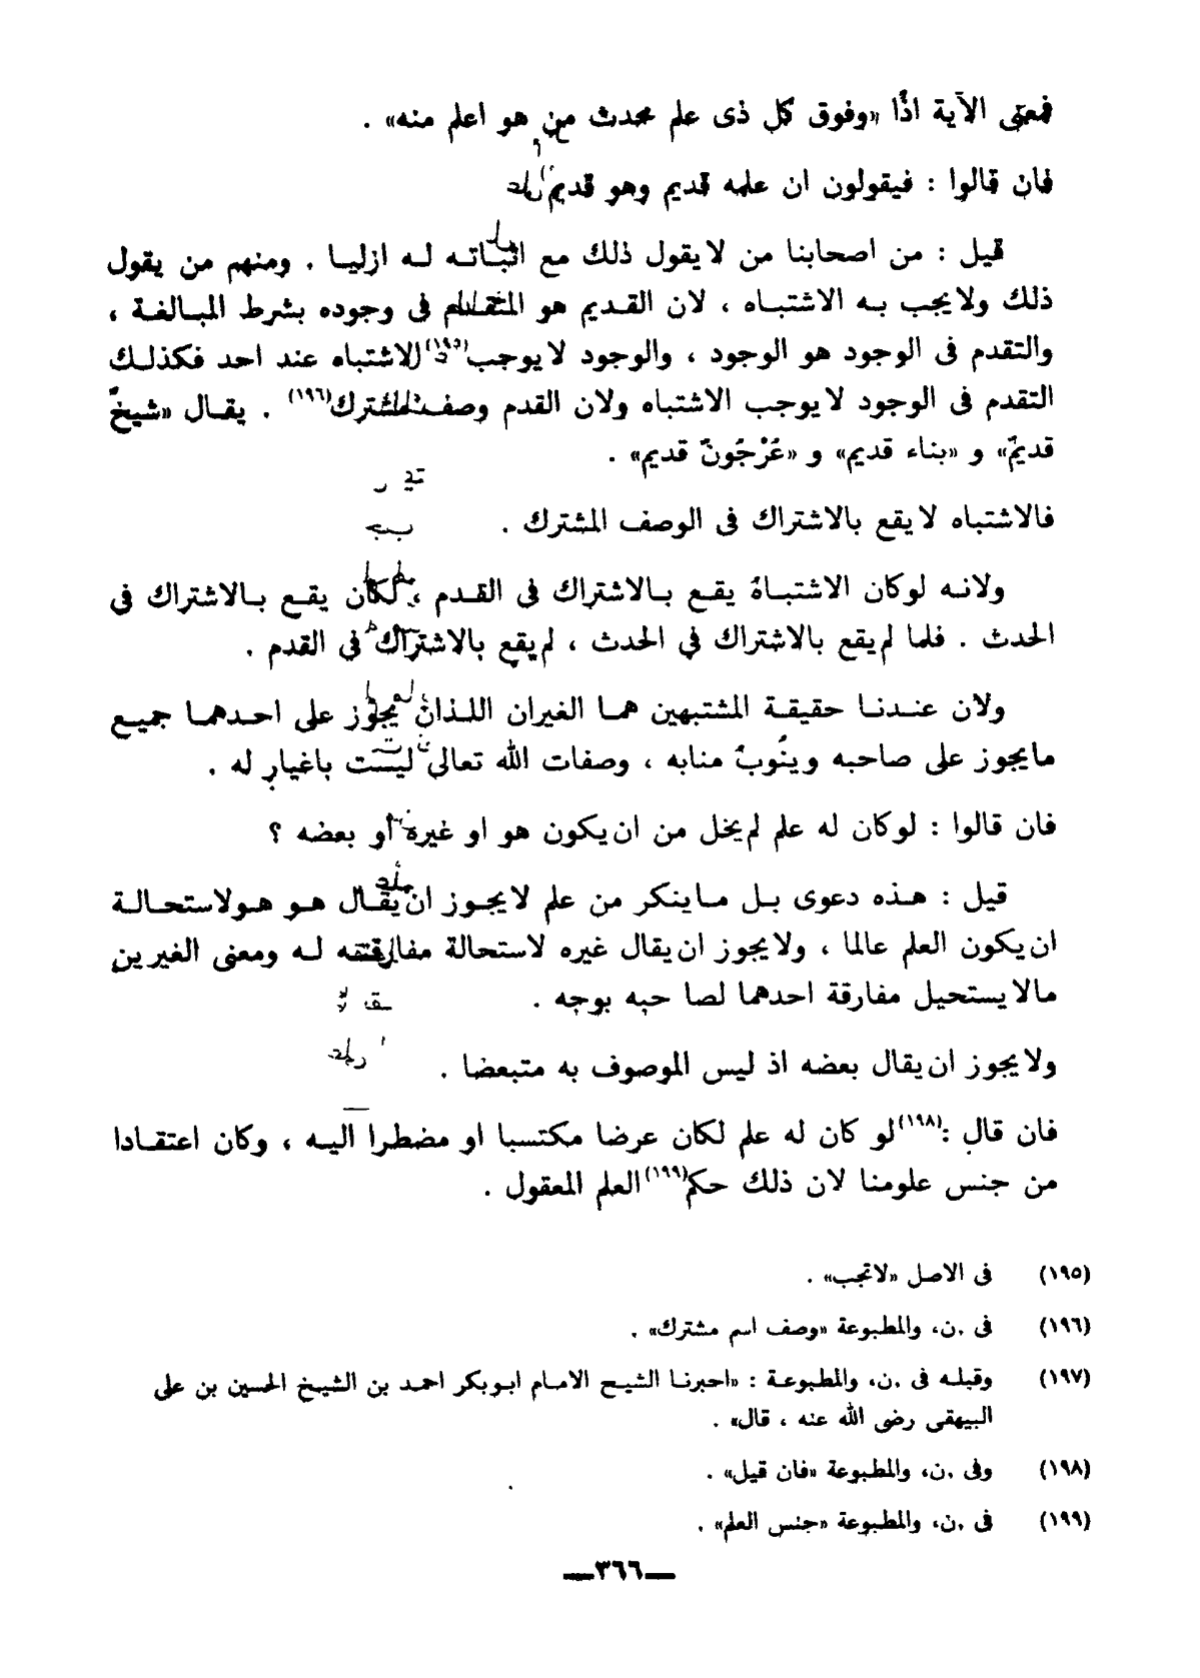 فمعنى الآية اذًا «وفوق كل ذى علم محدث من هو اعلم منه» .
فان قالوا : فيقولون ان علمه قديم وهو قديم
قيل : من اصحابنا من لا يقول ذلك مع اثباته له ازليا . ومنهم من يقول
ذلك ولا يجب به الاشتباه ، لان القديم هو المتقدم فى وجوده بشرط المبالغة ،
والتقدم فى الوجود هو الوجود ، والوجود لا يوجب(١٩٥) الاشتباه عند احد فكذلك
التقدم فى الوجود لا يوجب الاشتباه ولان القدم وصف مشترك(١٩٦) . يقال «شيخٌ
قديمٌ» و «بناء قديم» و «عُرْجُونٌ قديم» .
فالاشتباه لا يقع بالاشتراك فى الوصف المشترك .
ولانه لوكان الاشتباهُ يقع بالاشتراك فى القدم ، لكان يقع بالاشتراك فى
الحدث . فلما لم يقع بالاشتراك في الحدث ، لم يقع بالاشتراك في القدم .
ولان عندنا حقيقة المشتبهين هما الغيران اللذان يجوز على احدهما جميع
مايجوز على صاحبه وينُوبُ منابه ، وصفات الله تعالى ليست باغيارٍ له .
فان قالوا : لوكان له علم لم يخل من ان يكون هو او غيره أو بعضه ؟
قيل : هذه دعوى بل ماينكر من علم لا يجوز ان يقال هو هولاستحالة
ان يكون العلم عالما ، ولا يجوز ان يقال غيره لاستحالة مفارقته له ومعنى الغيرين
مالا يستحيل مفارقة احدهما لصا حبه بوجه .
ولا يجوز ان يقال بعضه اذ ليس الموصوف به متبعضا .
فان قال :(١٩٨) لو كان له علم لكان عرضا مكتسبا او مضطرا اليه ، وكان اعتقادا
من جنس علومنا لان ذلك حكم(١٩٩) العلم المعقول .
(١٩٥) فى الاصل «لاتجب» .
(١٩٦) فى .ن، والمطبوعة «وصف اسم مشترك» .
(١٩٧) وقبله فى .ن، والمطبوعة : «احبرنا الشيح الامام ابوبكر احمد بن الشيخ الحسين بن على
البيهقى رضى الله عنه ، قال» .
(١٩٨) وفى .ن، والمطبوعة «فان قيل» .
(١٩٩) فى .ن، والمطبوعة «جنس العلم» .
—٣٦٦—